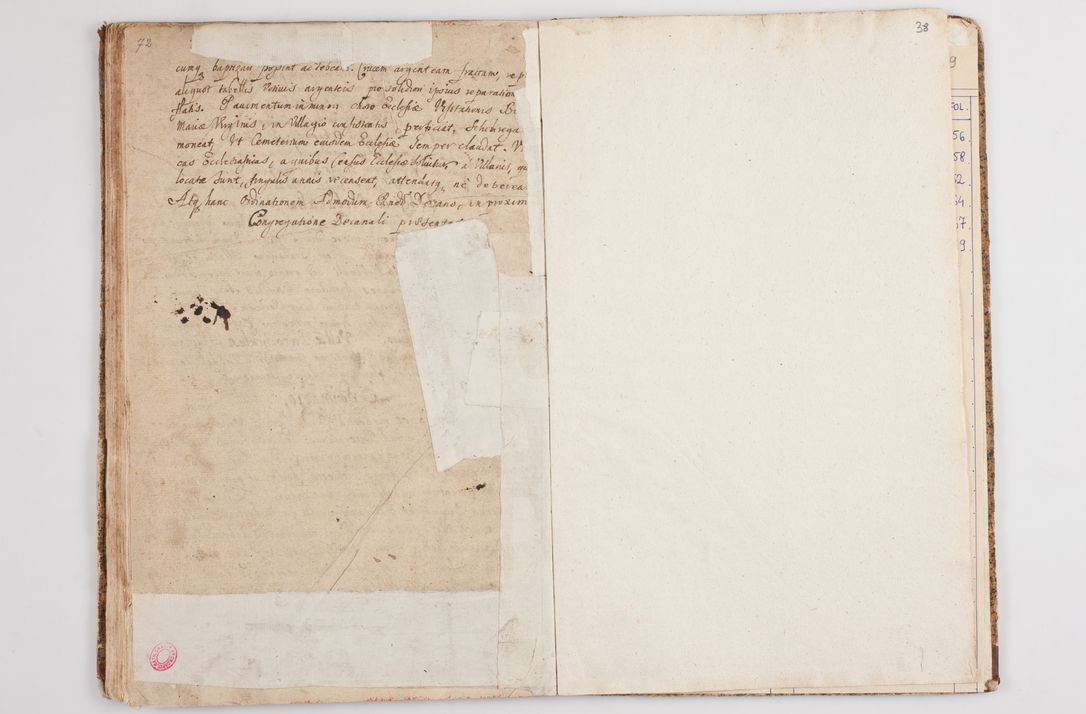 72
cumq baptizari possint ac debeant. Crucem argenteam fractam, vep
aliquot tabellis Votivis argenteis pro solidiori ipsius reparation
flatis. Pavimentum in minori Choro Ecclesiæ Visitationis B
Mariæ Virginis, in Villagio consistentis, perficiat,
moneat, Ut Cemeterium eiusdem Ecclesiæ semper claudat. V
cas Ecclesiasticas, a quibus census Ecclesiæ a Villanis, qu
locatæ sunt, singulis annis recenseat, attendatq, ne deterea
Atq hanc Ordinationem Admodum Rndo Decano, in proxim
Congregatione Decanali præsentet
38
9
OL.
56
58
52
54
57
9